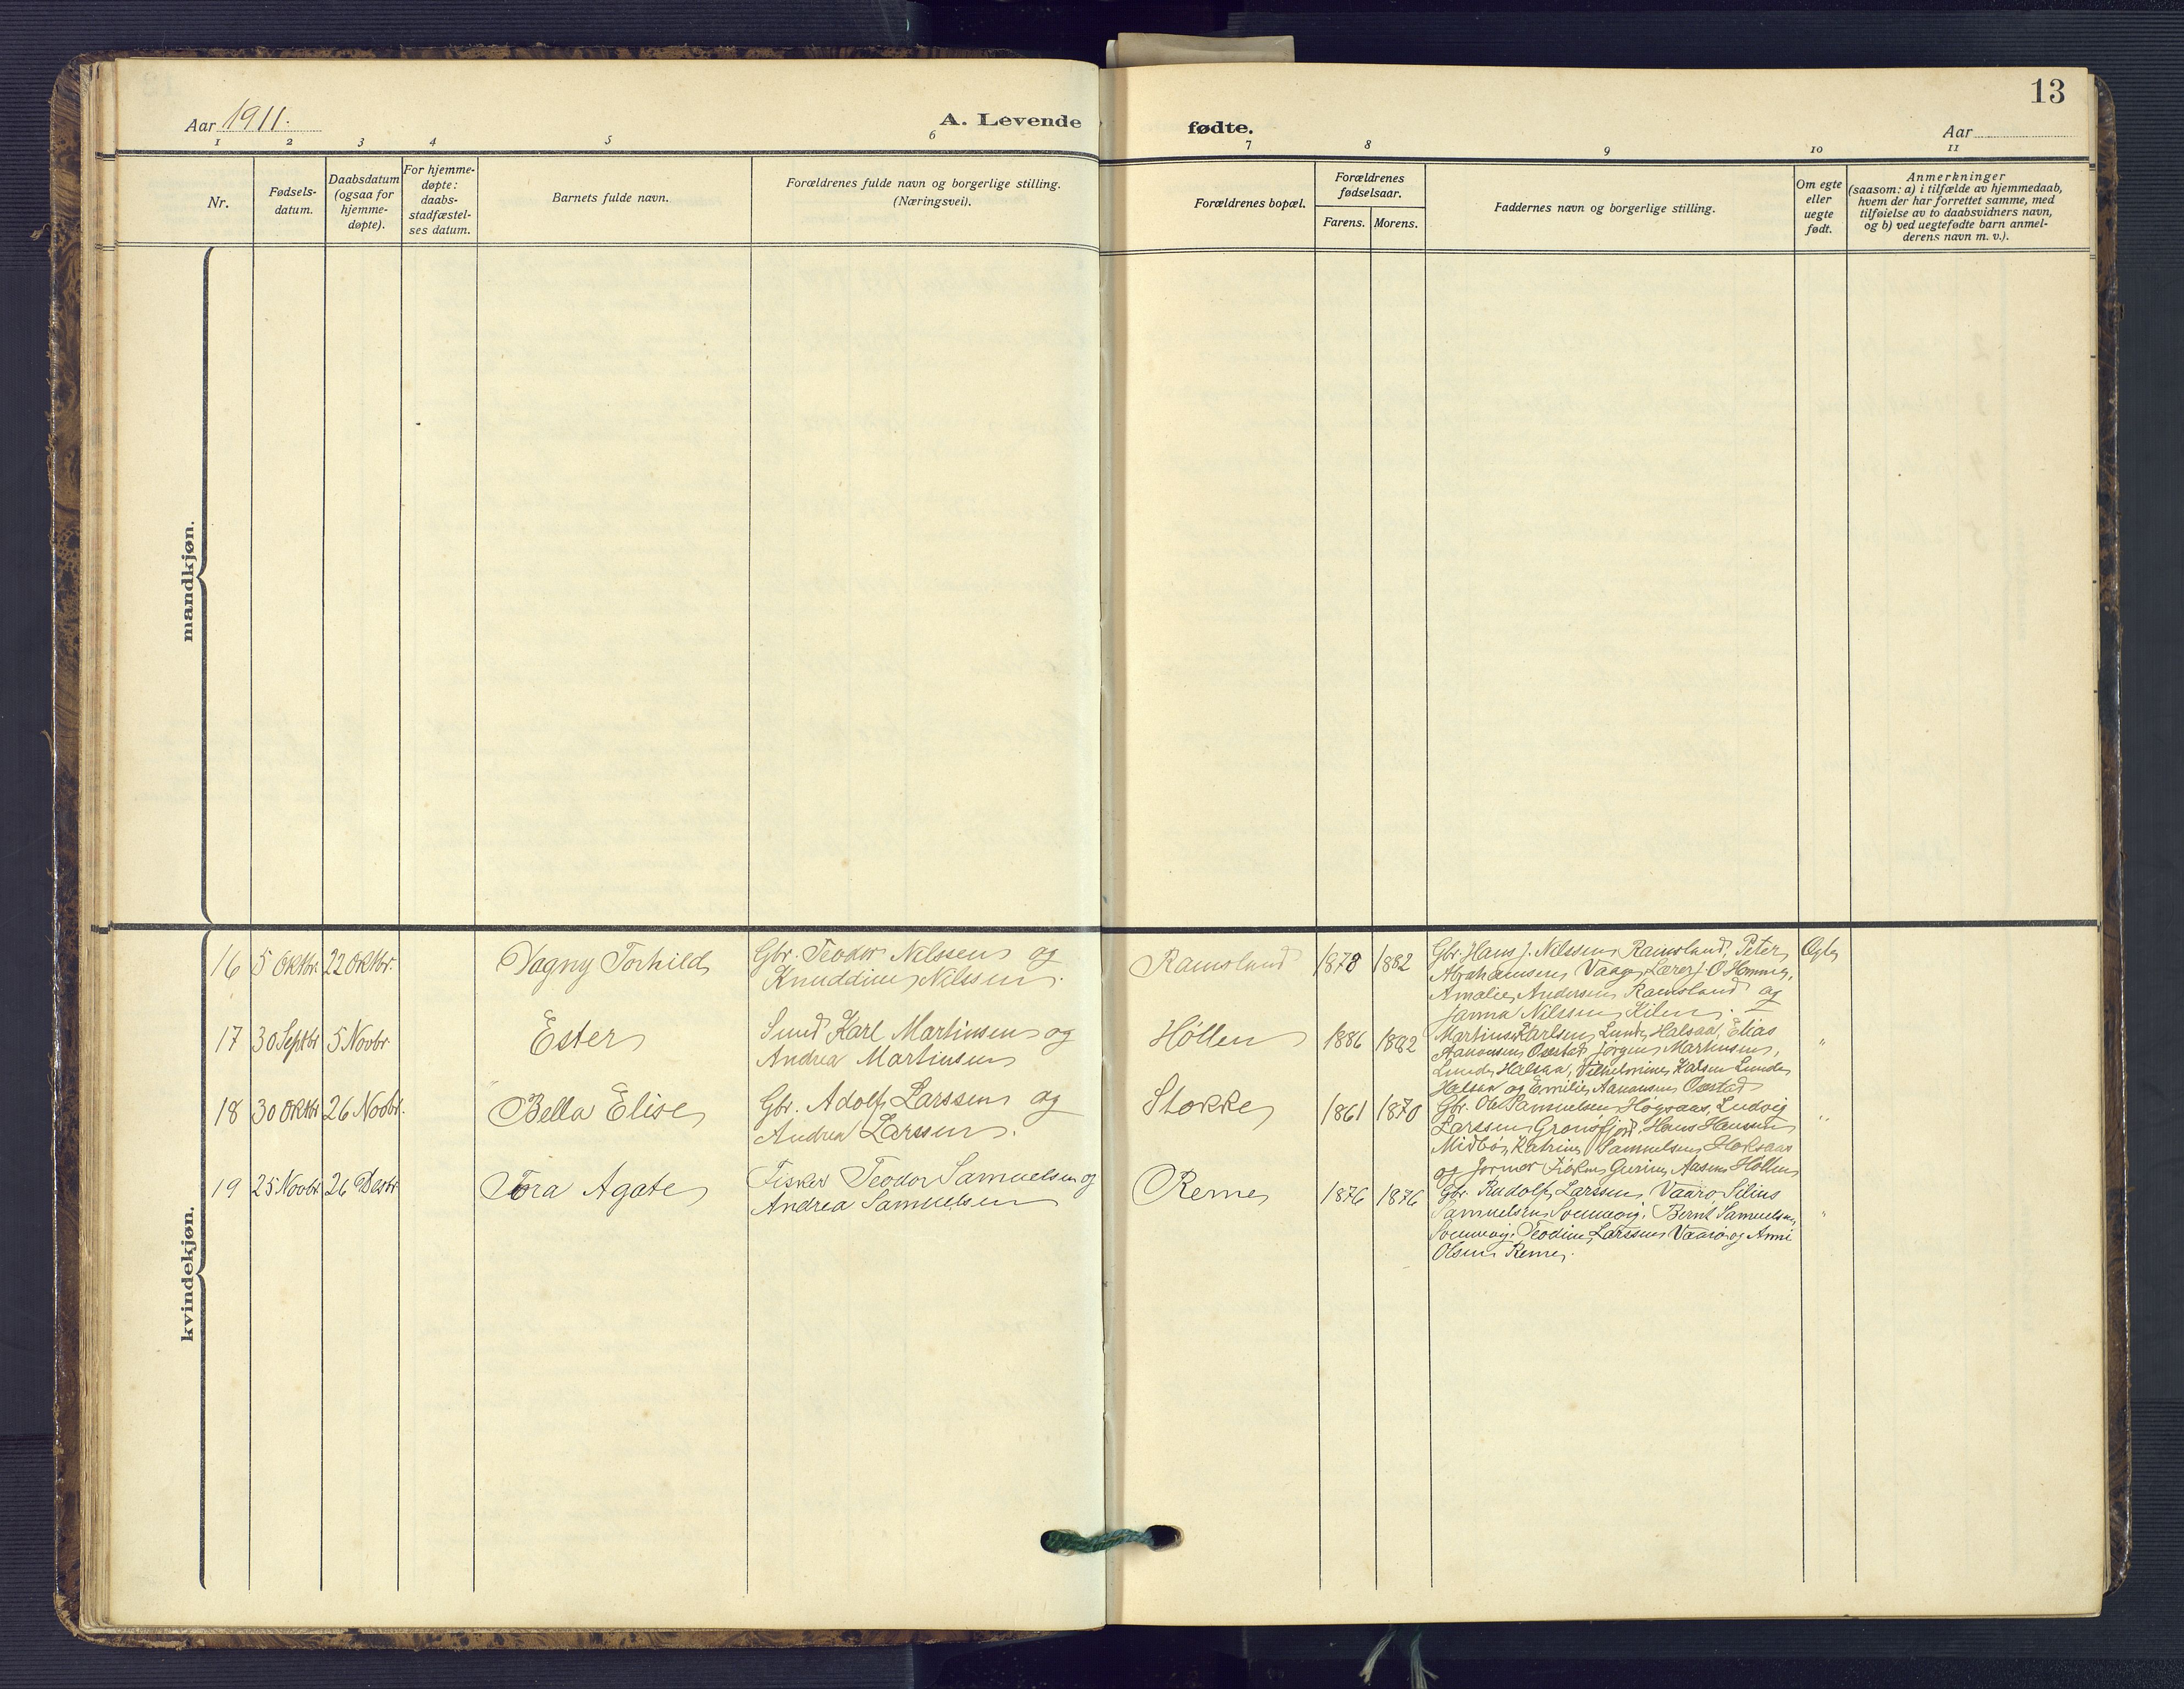 13
Aar 1911.
A. Levende fødte.
Aar
1 2 3 4 5 6 7 8 9 10 11
Nr.
Fødsels-
datum.
Daabsdatum
(ogsaa for
hjemme-
døpte).
For hjemme-
døpte:
daabs-
stadfæstel-
ses datum.
Barnets fulde navn.
Forældrenes fulde navn og borgerlige stilling.
(Næringsvei).
Forældrenes bopæl.
Forældrenes
fødselsaar.
Farens. Morens.
Faddernes navn og borgerlige stilling.
Om egte
eller
uegte
født.
Anmerkninger
(saasom: a) i tilfælde av hjemmedaab,
hvem der har forrettet samme, med
tilføielse av to daabsvidners navn,
og b) ved uegtefødte barn anmel-
derens navn m. v.).
mandkjøn.
kvindekjøn.
16 5 Oktbr. 22 Oktbr.
Dagny Torhild
Gbr. Teodor Nilssen og
Knuddine Nilssen.
Ramsland
1878 1882
Gbr. Hans J. Nilssen Ramsland, Peter
Abrahamsen Vaage, Lærer J. O. Homme,
Amalie Andersen Ramsland og
Janna Nilssen Kilen.
Egte
17 30 Septbr 5 Novbr.
Ester
Smed Karl Martinsen og
Andrea Martinsen
Høllen
1886 1882
Martinus Karlsen Lunde Halsaa, Elias
Aanonsen Oxestad, Jørgen Martinsen,
Lunde Halsaa, Vilhelmine Kalsen Lunde
Halsaa og Emilie Aanonsen Oxestad
"
18 30 Oktbr 26 Novbr.
Bella Elise
Gbr. Adolf Larssen og
Andrea Larssen.
Stokke
1861 1870
Gbr. Ole Samuelsen Høgsaas, Ludvig
Larssen Grønsfjord, Hans Hanssen
Midbø, Katrine Samuelsen
og Gurine Aasen Høllen
"
19 25 Novbr. 26 Desbr
Tora Agate
Fisker Teodor Samuelsen og
Andrea Samuelsen
Reme
1876 1876
Gbr. Rudolf Larssen, Vaarø, Silius
Samuelsen Svennevig, Bernt Samuelsen,
Svennevig, Teodine Larssen Vaarø og Anni
Olsen Reme.
"